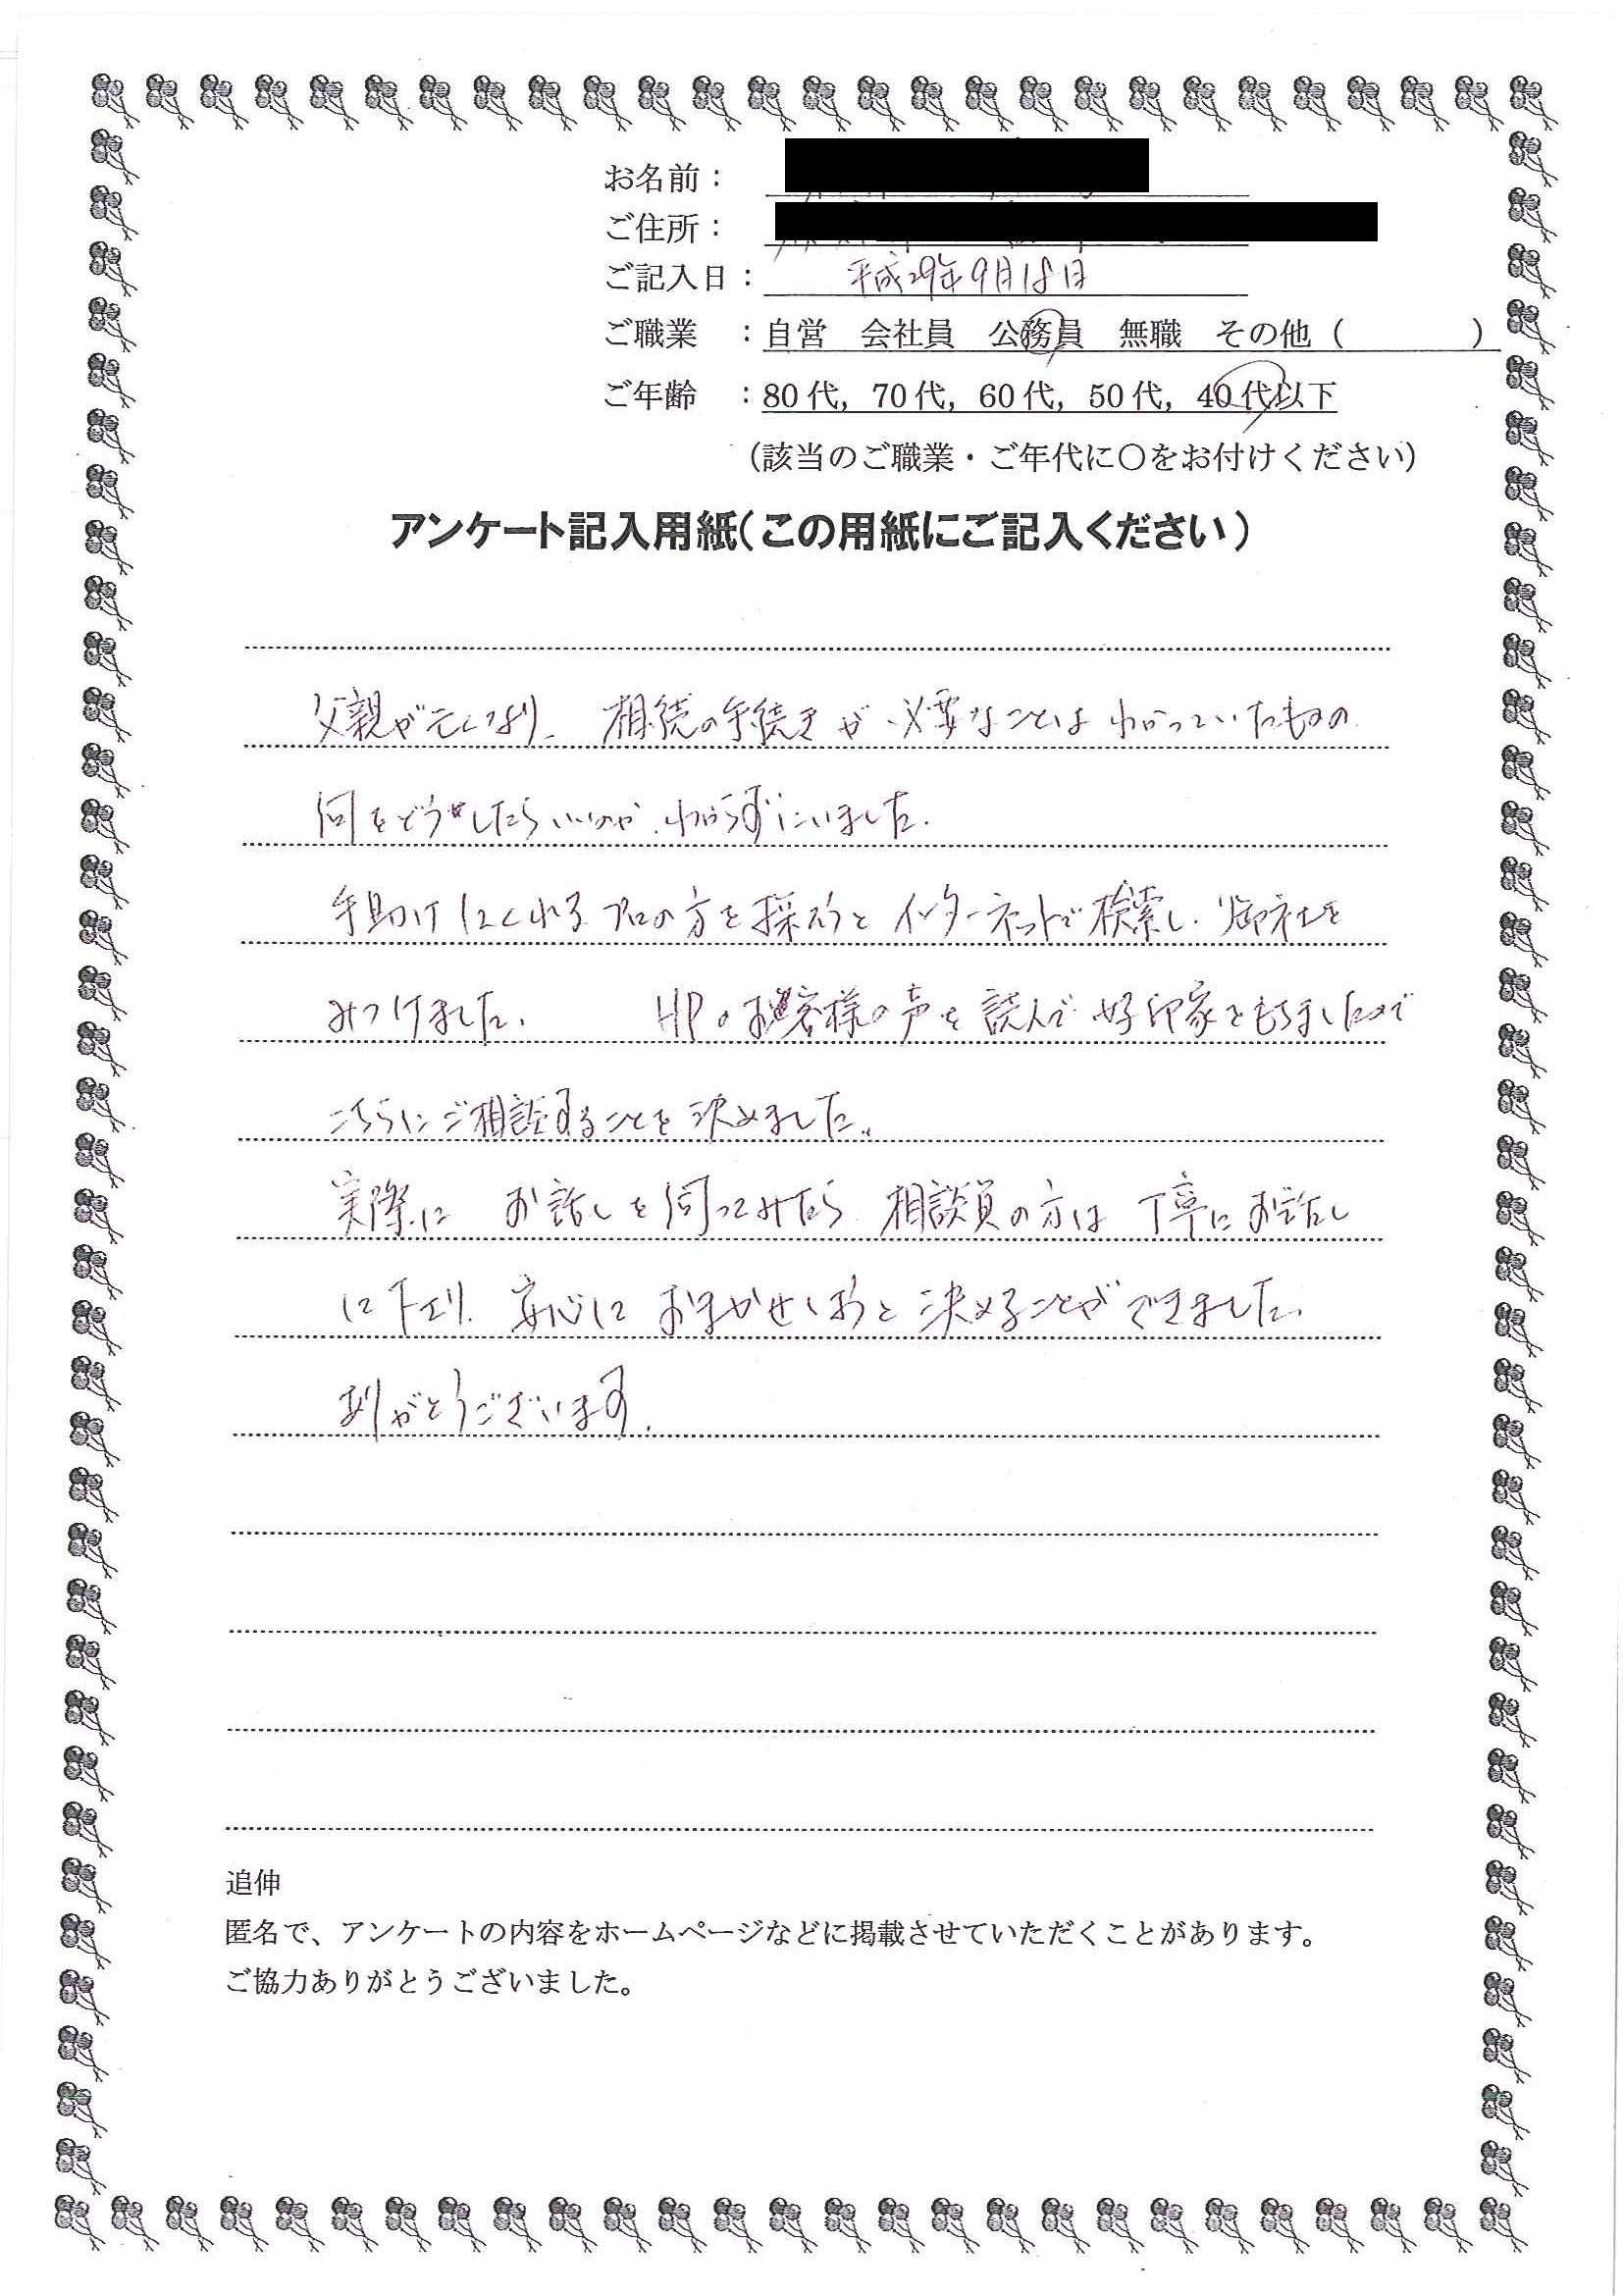 お名前：
ご住所：
ご記入日： 平成29年9月18日
ご職業　：自営　会社員　公務員　無職　その他（　　　　）
ご年齢　：80代，70代，60代，50代，40代以下
（該当のご職業・ご年代に〇をお付けください）
アンケート記入用紙（この用紙にご記入ください）
父親が亡くなり、相続の手続きが必要なことはわかっていたものの
何をどうしたらいいのか、わからずにいました。
手助けしてくれるプロの方を探そうとインターネットで検索し、御社を
みつけました。　HPのお客様の声を読んで好印象をもちましたので
こちらにご相談することを決めました。
実際に お話しを伺ってみたら、相談員の方は丁寧にお話し
して下さり、安心して おまかせしようと決めることができました。
ありがとうございます。
追伸
匿名で、アンケートの内容をホームページなどに掲載させていただくことがあります。
ご協力ありがとうございました。